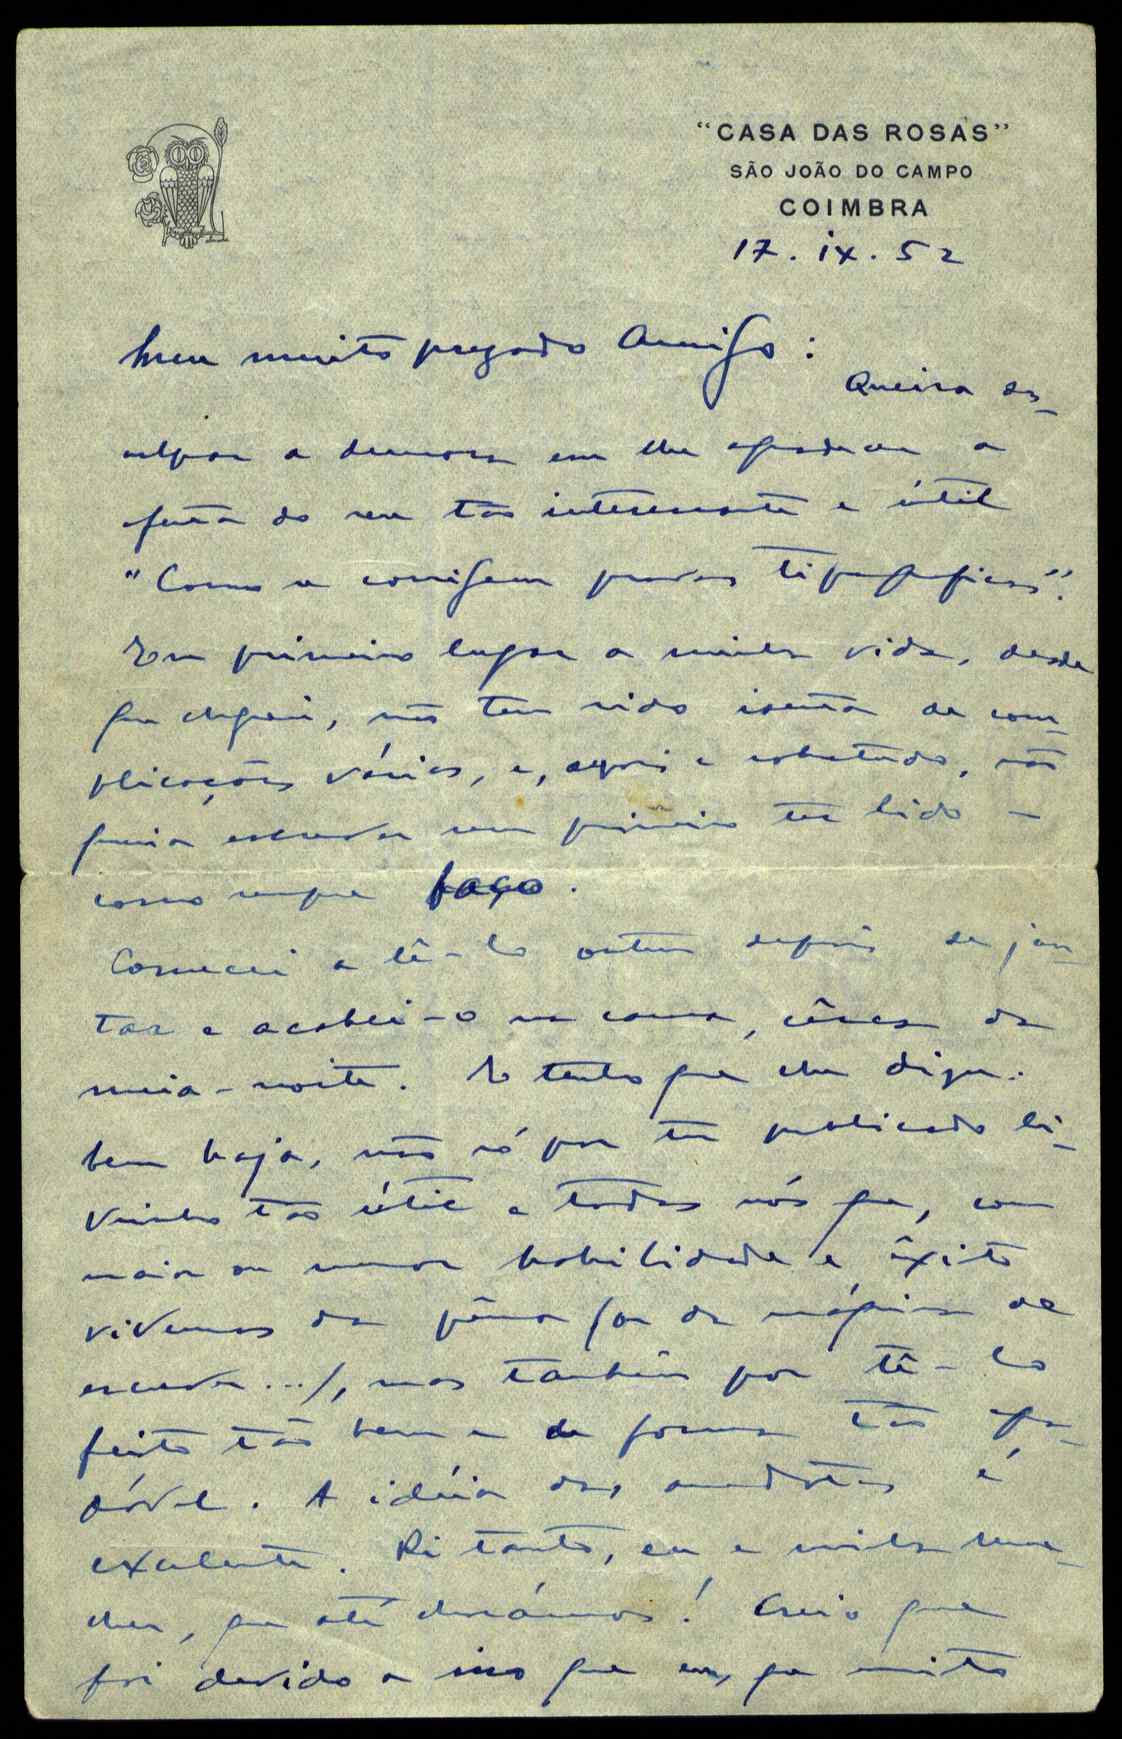 “CASA DAS ROSAS”
SÃO JOÃO DO CAMPO
COIMBRA
17. ix. 52
Meu muito prezado Amigo:
Queira des-
culpar a demora em lhe agradecer a
oferta do seu tão interessante e útil
"Como se corrigem provas tipográficas".
Em primeiro lugar a minha vida, desde
que cheguei, não tem sido isenta de com-
plicações várias, e, depois e sobretudo, não
queria escrever sem primeiro ter lido —
como sempre faço.
Comecei a lê-lo ontem depois de jan-
tar e acabei-o na cama, cêrca da
meia-noite. E tenho que lhe diga:
bem haja, não só por ter publicado li-
vrinho tão útil a todos nós que, com
maior ou menor habilidade e êxito
vivemos da pêna (ou da máquina de
escrever...), mas também por tê-lo
feito tão bem e de forma tão agra-
dável. A idéia das anedotas é
excelente. Ri tanto, eu e minha mu-
lher, que até chorámos! Creio que
foi devido a isso que eu, que muito